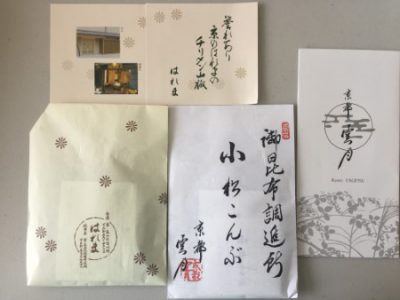 誉れあり
京のはれまの
チリメン山椒
はれま
はれま
御昆布調進所
小松こんぶ
京都
雲月
京都
雲月
Kyoto UNGETSU